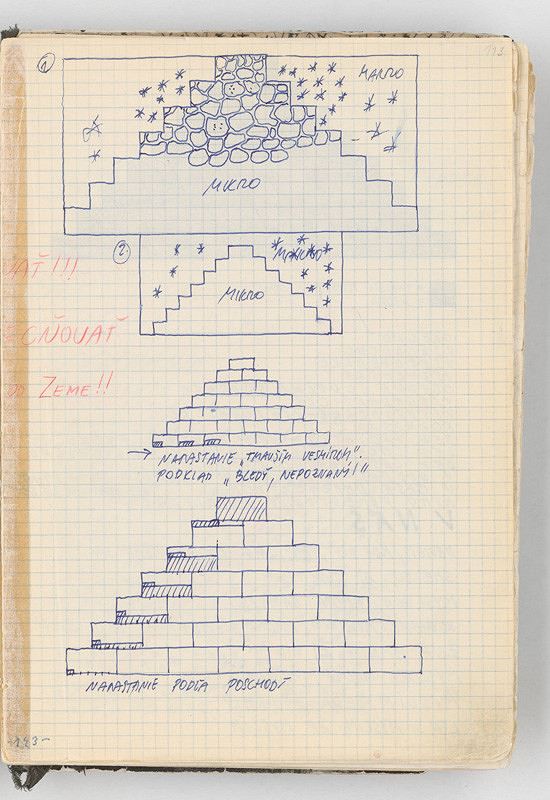 1
113
MAKRO
MIKRO
2
MAKRO
MIKRO
VAŤ!!!
CŇOVAŤ
ZEME!!
→ NARASTANIE „TMAVŠÍM VESMÍROM".
PODKLAD „BLEDÝ, NEPOZNANÝ!"
NARASTANIE PODĽA POSCHODÍ
-113-